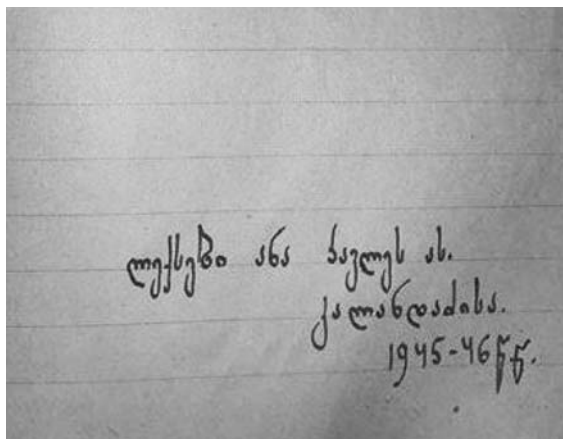 ლექსები ანა პავლეს ას.
კალანდაძისა.
1945-46წწ.